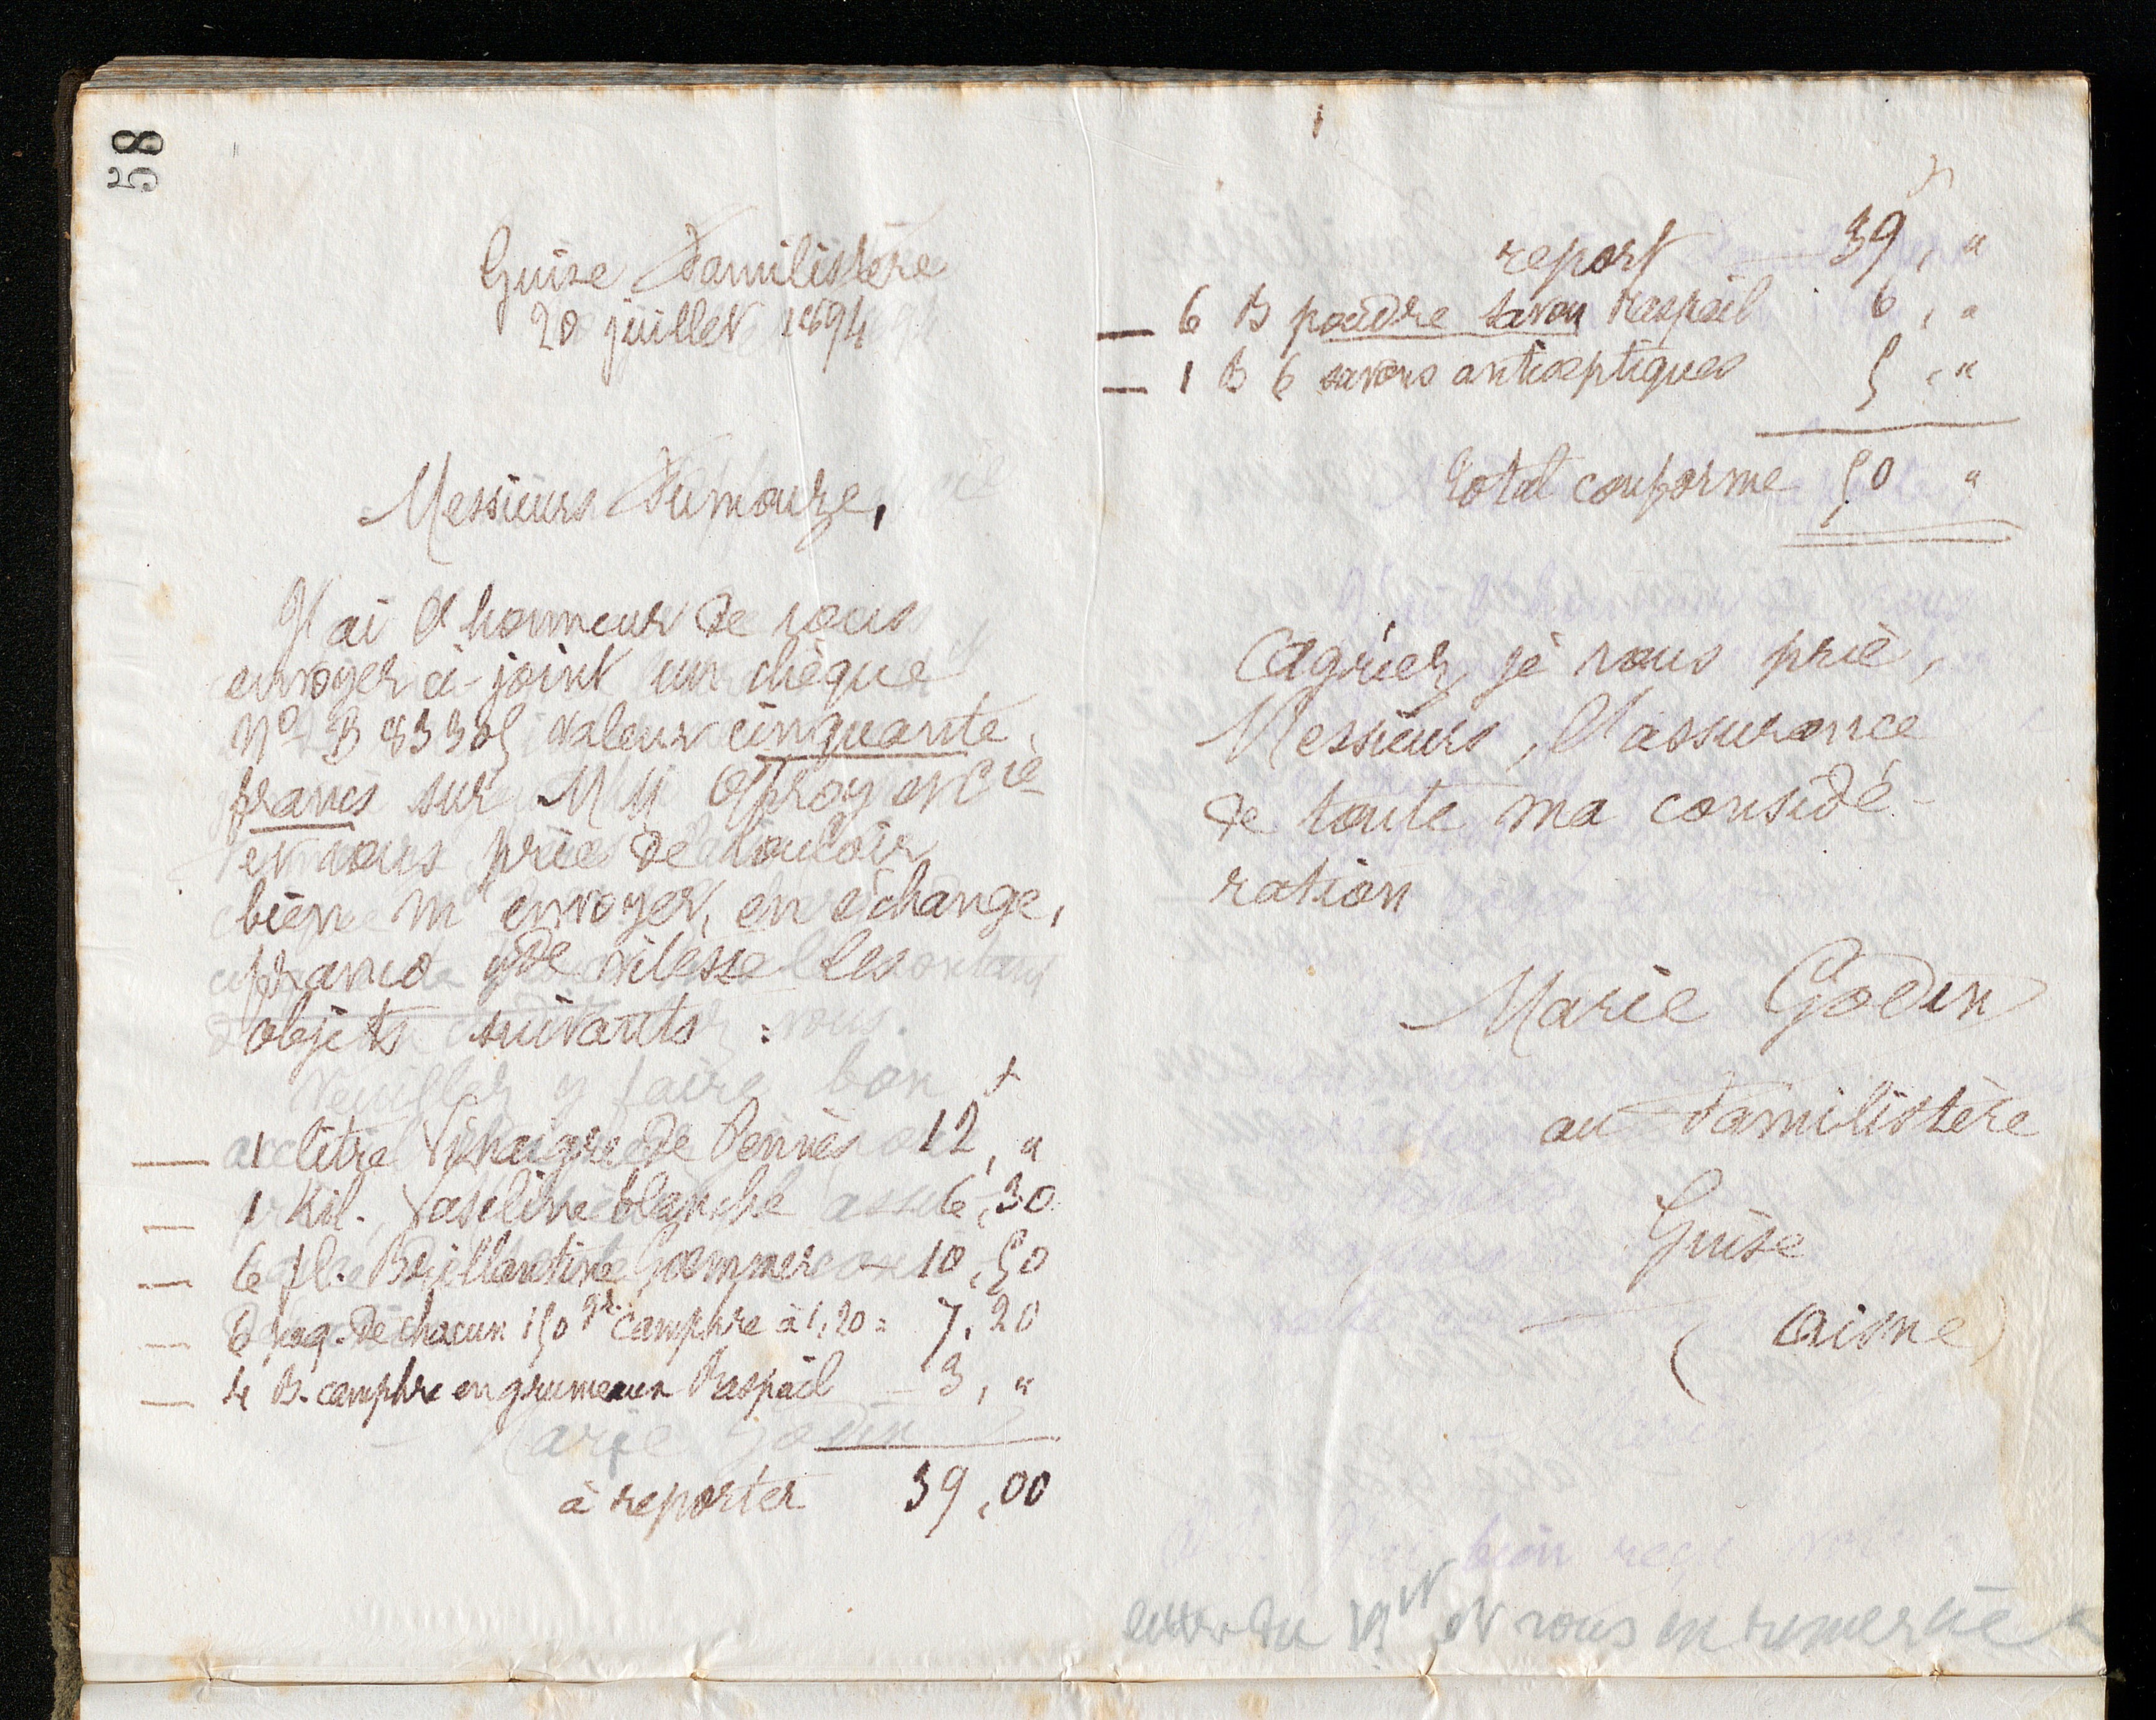 58
Guise Familistère
20 juillet 1894
Messieurs Fumouze,
J'ai l'honneur de vous
envoyer ci-joint un chèque
No B 83305 valeur cinquante
francs sur MM Offroy et Cie
et vous prie de vouloir
bien m'envoyer, en échange,
franco gde vitesse les
objets suivants :
f
1 litre Vinaigre de Pennès 12, "
1 Kil. Vaseline blanche 6,30
6 fl. Brillantine Goemmer 10,50
6 paq. de chacun 150 gr. camphre à 1,20 = 7,20
4 B. camphre en grumeaux Raspail 3, "
à reporter 39,00
f
report 39, "
6 B poudre savon Raspail 6, "
1 B 6 savons antiseptiques 5, "
Total conforme 50 "
Agréez, je vous prie,
Messieurs, l'assurance
de toute ma considé-
ration
Marie Godin
au Familistère
Guise
(Aisne)
et vous en remercie